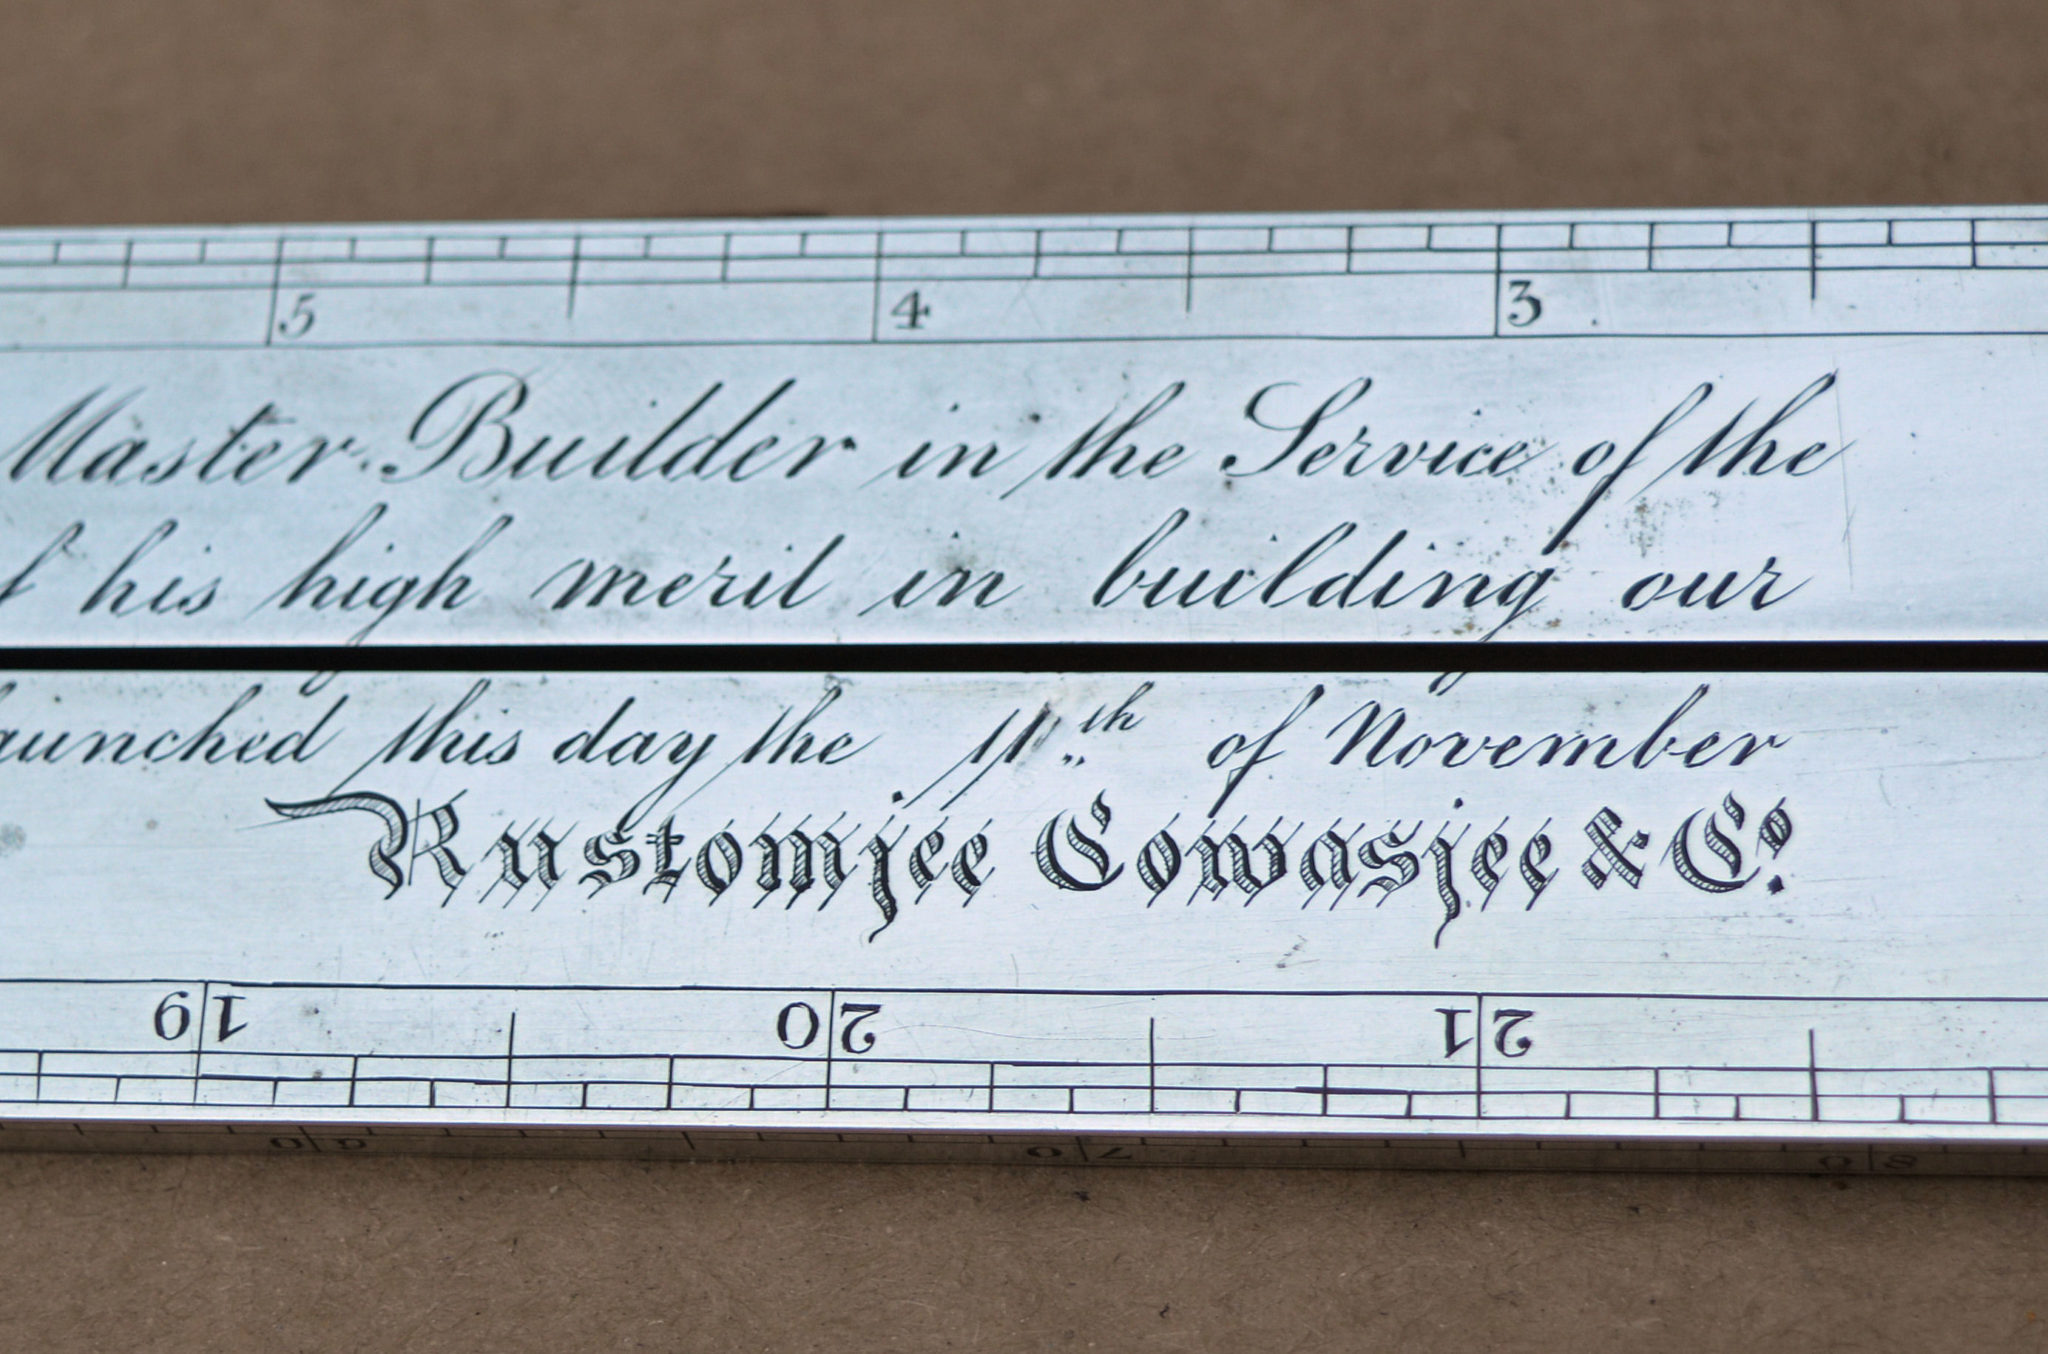 5 4 3
Master Builder in the Service of the
f his high merit in building our
launched this day the 11th of November
Rustomjee Cowasjee & Co.
19 20 21